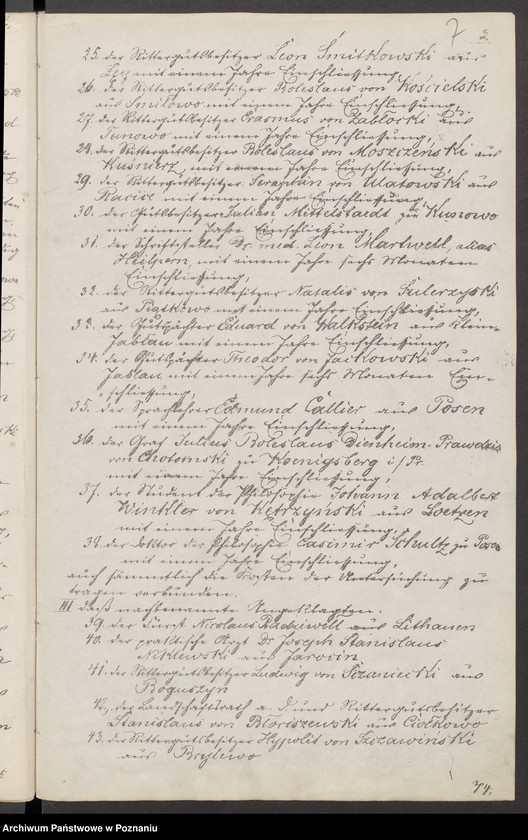 7 2
25. der Rittergutsbesitzer Leon Smitkowski aus
Leg mit einem Jahre Einschließung,
26. der Rittergutsbesitzer Boleslaus von Koscielski
aus Smilowo mit einem Jahre Einschließung,
27. der Rittergutsbesitzer Erasmus von Zablocki aus
Tunowo mit einem Jahre Einschließung,
28. der Rittergutsbesitzer Boleslaus von Moszczenski aus
Kusnierz, mit einem Jahre Einschließung,
29. der Rittergutsbesitzer Seraphin von Ulatowski aus
mit einem Jahre Einschließung,
30. der Gutsbesitzer Julian Mittelstaedt zu Kunowo
mit einem Jahre Einschließung,
31. der Schriftsteller Dr. med. Leon Martwell, alias
Heilpern, mit einem Jahre sechs Monaten
Einschließung,
32. der Rittergutsbesitzer Natalis von Sulerzyski
aus Piątkowo mit einem Jahre Einschließung,
33. der Gutspächter Eduard von Kalkstein aus Klein-
Jablau mit einem Jahre Einschließung,
34. der Gutspächter Theodor von Jackowski aus
Jablau mit einem Jahre sechs Monaten Ein-
schließung,
35. der Sprachlehrer Edmund Callier aus Posen
mit einem Jahre Einschließung,
36. der Graf Julius Boleslaus Dienheim-Prawdzic
von Chotomski zu Koenigsberg i/Pr.
mit einem Jahre Einschließung,
37. der Student der Philosophie Johann Adalbert
Winkler von Kętrzynski aus Loetzen
mit einem Jahre Einschließung,
38. der Doktor der Philosophie Casimir Schultz zu Posen
mit einem Jahre Einschließung,
auch sämmtlich die Kosten der Untersuchung zu
tragen verbunden.
III daß nachbenannte Angeklagten:
39. der Fürst Nicolaus Radziwill aus Lithauen
40. der praktische Arzt Dr Joseph Stanislaus
Niklewski aus Jarocin
41. der Rittergutsbesitzer Ludwig von Sczaniecki aus
Boguszyn
42. der Landschaftsrath a. D. und Rittergutsbesitzer
Stanislaus von Bloriszewski aus Ciolkowo
43. der Rittergutsbesitzer Hyppolit von Szczawinski
aus Brylewo
44.
Archiwum Państwowe w Poznaniu